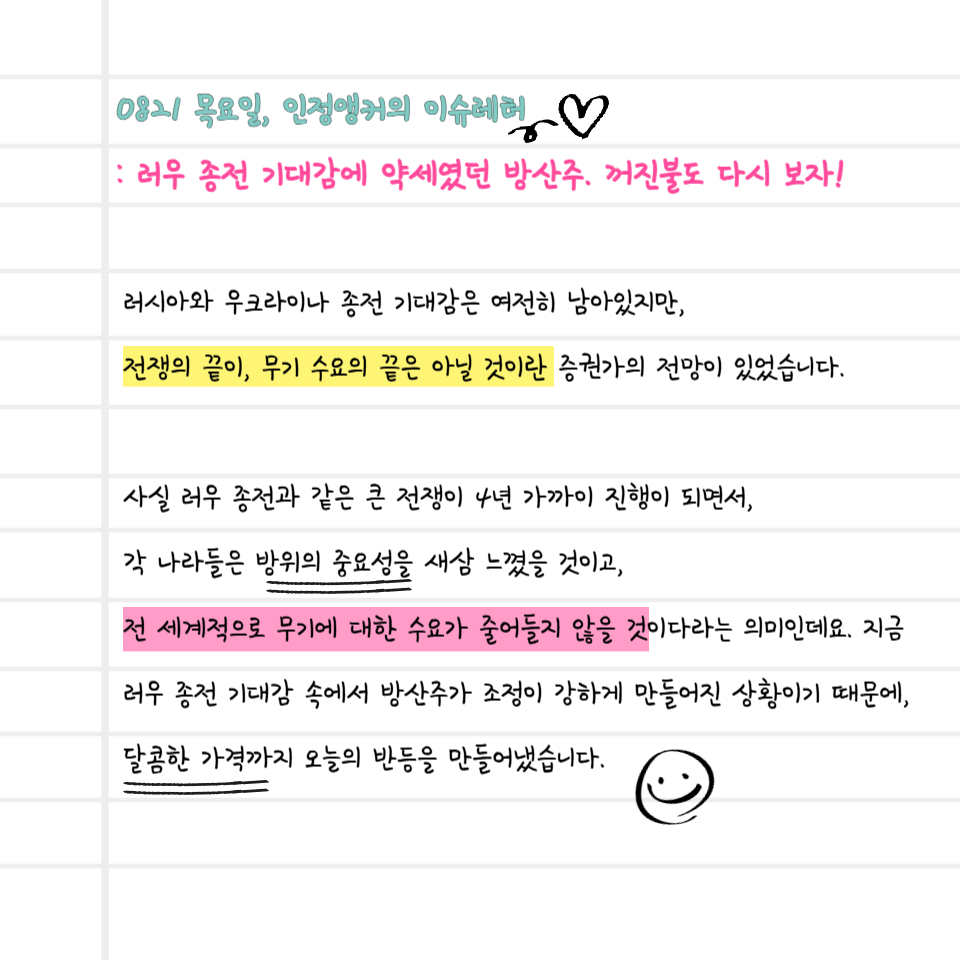 0821 목요일, 인정앵커의 이슈레터
: 러우 종전 기대감에 약세였던 방산주. 꺼진불도 다시 보자!
러시아와 우크라이나 종전 기대감은 여전히 남아있지만,
전쟁의 끝이, 무기 수요의 끝은 아닐 것이란 증권가의 전망이 있었습니다.
사실 러우 종전과 같은 큰 전쟁이 4년 가까이 진행이 되면서,
각 나라들은 방위의 중요성을 새삼 느꼈을 것이고,
전 세계적으로 무기에 대한 수요가 줄어들지 않을 것이다라는 의미인데요. 지금
러우 종전 기대감 속에서 방산주가 조정이 강하게 만들어진 상황이기 때문에,
달콤한 가격까지 오늘의 반등을 만들어냈습니다.